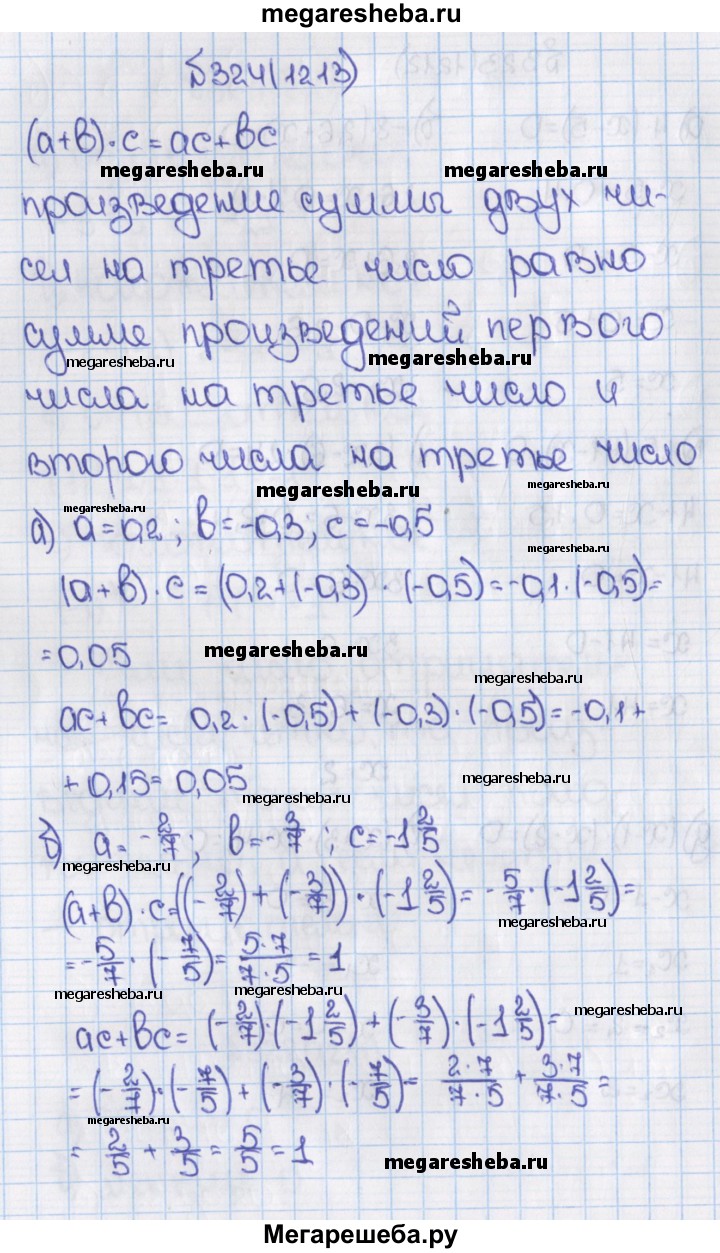 megaresheba.ru
№324(1213)
(a+b)·c=ac+bc
megaresheba.ru megaresheba.ru
произведение суммы двух чи-
сел на третье число равно
сумме произведений первого
megaresheba.ru megaresheba.ru
числа на третье число и
второго числа на третье число
megaresheba.ru megaresheba.ru
megaresheba.ru
а) a=0,2; b=-0,3; c=-0,5
megaresheba.ru
(a+b)·c=(0,2+(-0,3)·(-0,5)=-0,1·(-0,5)=
=0,05 megaresheba.ru
megaresheba.ru
ac+bc= 0,2·(-0,5)+(-0,3)·(-0,5)=-0,1+
+0,15=0,05 megaresheba.ru
megaresheba.ru megaresheba.ru
б) a=-2/7; b=-3/7; c=-1 2/5
megaresheba.ru
(a+b)·c=((-2/7)+(-3/7))·(-1 2/5)=-5/7·(-1 2/5)=
megaresheba.ru
=-5/7·(-7/5)=5·7/7·5=1
megaresheba.ru megaresheba.ru
megaresheba.ru
ac+bc=(-2/7)·(-1 2/5)+(-3/7)·(-1 2/5)=
=(-2/7)·(-7/5)+(-3/7)·(-7/5)=2·7/7·5+3·7/7·5=
megaresheba.ru
=2/5+3/5=5/5=1
megaresheba.ru
Мегарешеба.ру